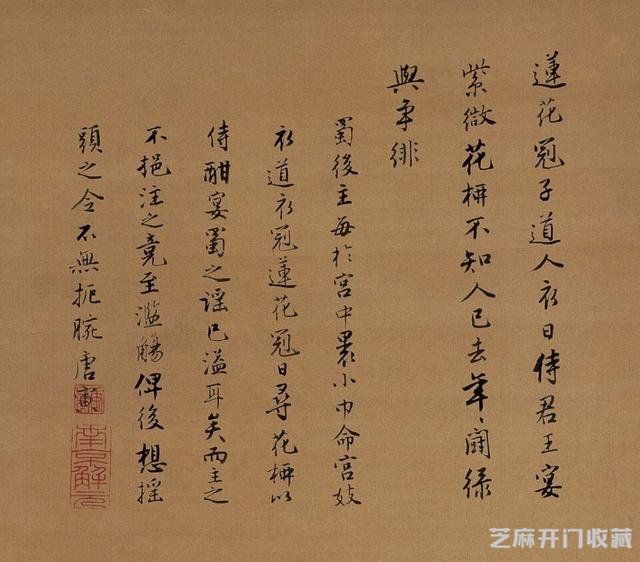 蓮花冠子道人衣日侍君王宴
紫微花柳不知人已去年、鬪绿
與争緋
蜀後主每於宮中裹小巾命宮妓
衣道衣冠蓮花冠日尋花柳以
侍酣宴蜀之謡已溢耳矣而主之
不挹注之竟至濫觴俾後想摇
頭之令不無扼腕唐寅
南京解元
芝麻开门收藏